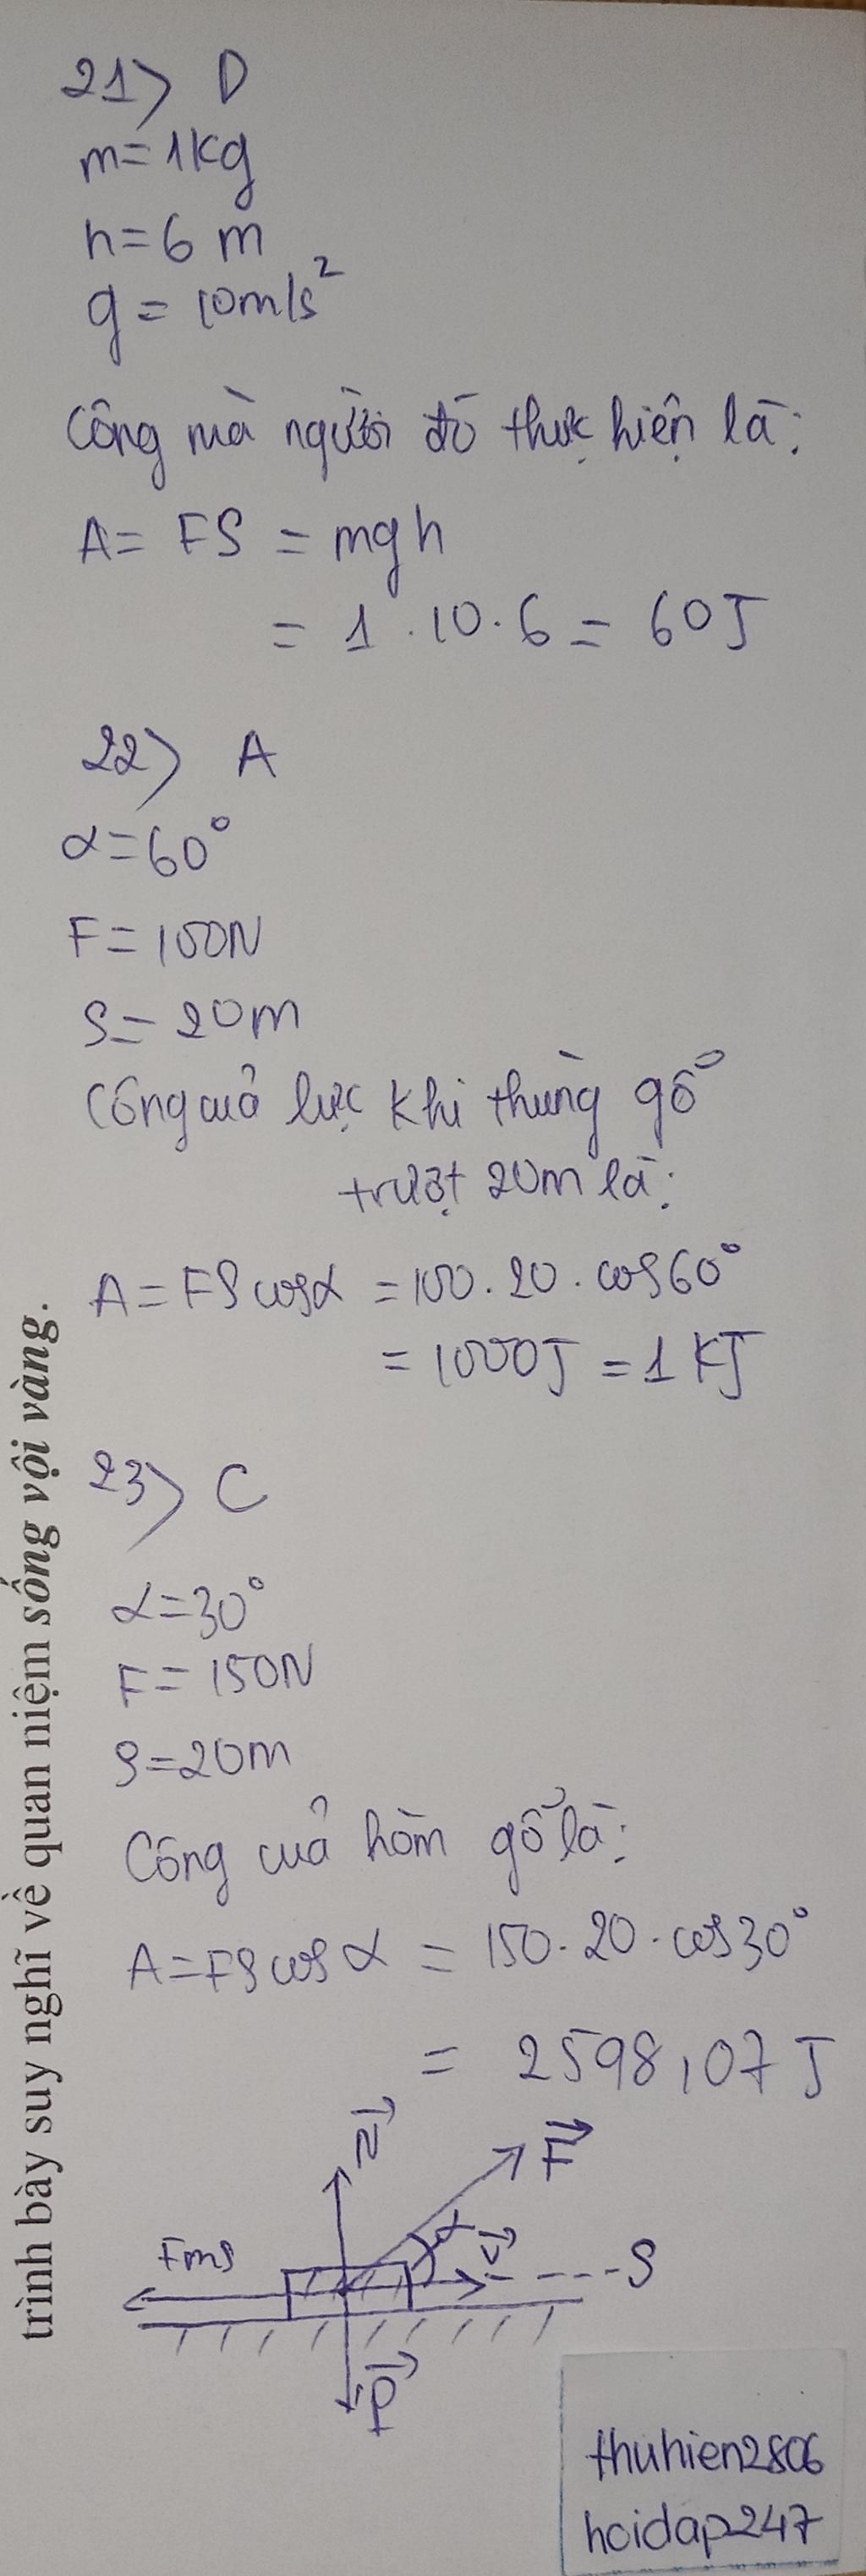 21> D
m=1kg
h=6 m
g=10m/s²
Công mà người đó thực hiện là:
A= FS = mgh
= 1.10.6 = 60J
22> A
α=60°
F=100N
S= 20m
Công của lực khi thùng gỗ
trượt 20m là:
A=FScosα =100.20.cos60°
=1000J =1KJ
23> C
α=30°
F=150N
S=20m
Công của hòm gỗ là:
A=FScosα = 150.20.cos30°
= 2598,07 J
N
F
α
Fms
v
S
P
trình bày suy nghĩ về quan niệm sống vội vàng.
thuhien2806
hoidap247